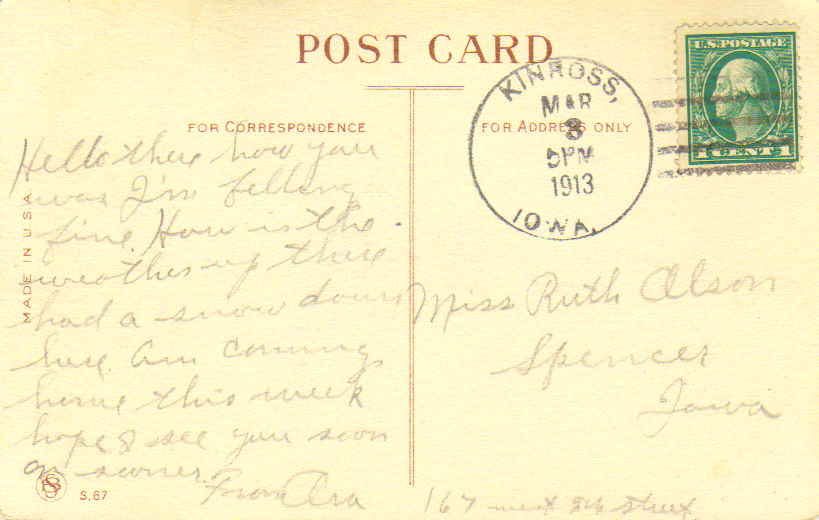 POST CARD
FOR CORRESPONDENCE
FOR ADDRESS ONLY
MADE IN U.S.A.
Hello there how you
was I'm felleng
fine. How is the
weather up there
had a snow down
here. am coming
home this week
hope to see you soon
or sooner.
From Ora
S. 67
KINROSS,
MAR
3
5PM
1913
IOWA.
U.S. POSTAGE
1 CENT 1
Miss Ruth Olson
Spencer
Iowa
167 west 8th street